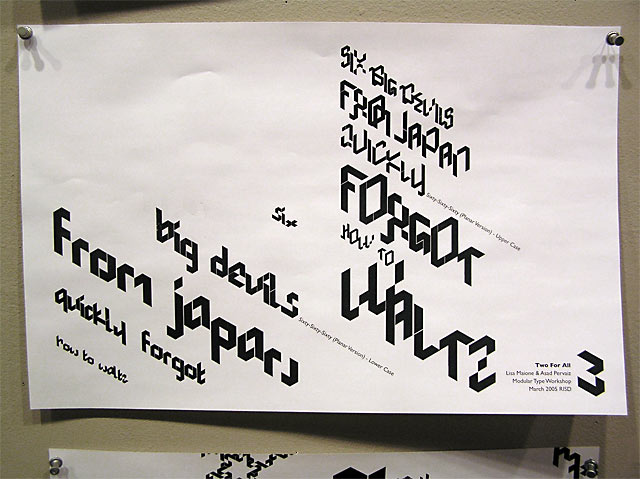 SIX BIG DEVILS
FROM JAPAN
QUICKLY
FORGOT
HOW
TO
WALTZ
Sixty-Sixty-Sixty (Planar Version) - Upper Case
six
big devils
from japan
quickly forgot
how to waltz
Sixty-Sixty-Sixty (Planar Version) - Lower Case
Two For All
Lisa Maione & Asad Pervaiz
Modular Type Workshop
March 2005 RISD
3